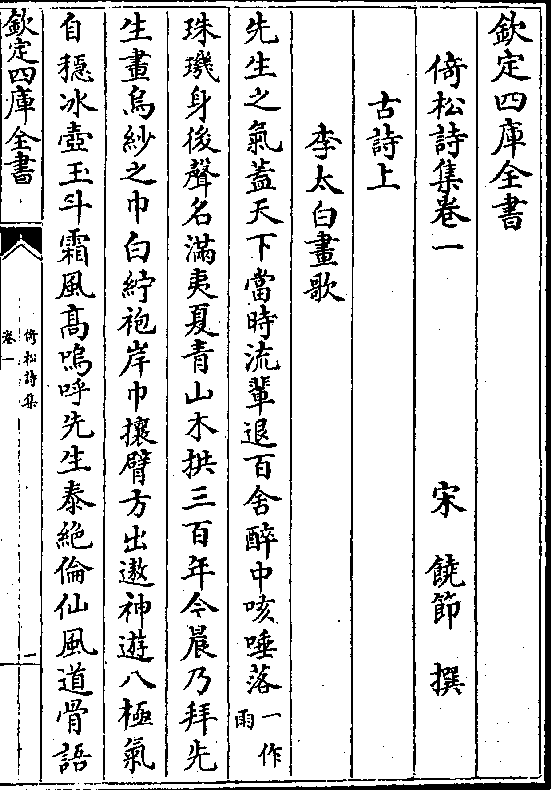 欽定四庫全書
倚松詩集卷一
宋 饒節 撰
古詩上
李太白畫歌
先生之氣蓋天下當時流輩退百舍醉中咳唾落一作雨
珠璣身後聲名滿夷夏青山木拱三百年今晨乃拜先
生畫烏紗之巾白紵袍岸巾攘臂方出遨神遊八極氣
自穩冰壺玉斗霜風髙嗚呼先生泰絶倫仙風道骨語
欽定四庫全書
倚松詩集
卷一
一